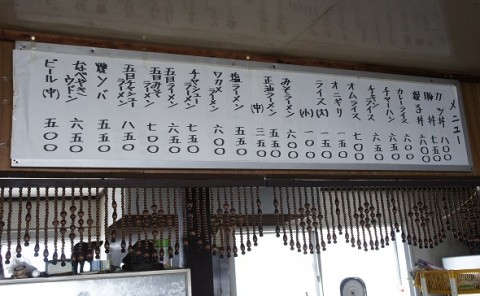 メニュー
カツ丼 八〇〇
豚丼 七五〇
親子丼 六〇〇
カレーライス 六〇〇
チャーハン 六五〇
チキンライス 六五〇
オムライス 七〇〇
オニギリ 一五〇
ライス(大)
(小) 一〇〇
みそラーメン 六〇〇
正油ラーメン 五五〇
(中) 三五〇
塩ラーメン 五五〇
ワカメラーメン 六〇〇
チャシューラーメン 六五〇
五目ラーメン 六五〇
五目みそラーメン 七〇〇
五目チャンコラーメン 八五〇
焼ソバ 六〇〇
なべやきウドン 六五〇
ビール(中) 五〇〇